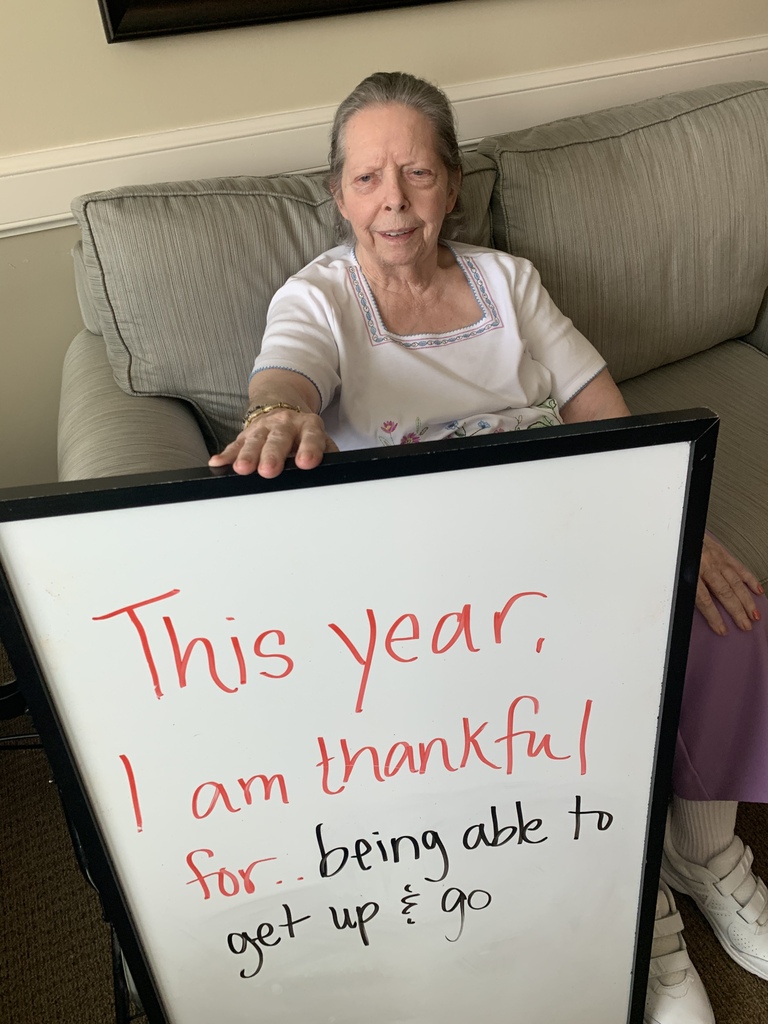 This year,
I am thankful
for.. being able to
get up & go